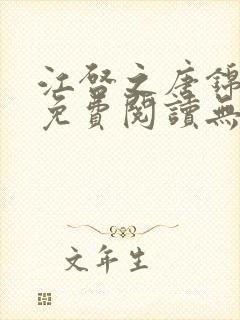 江啓之唐錦
免費閱讀無
文年生